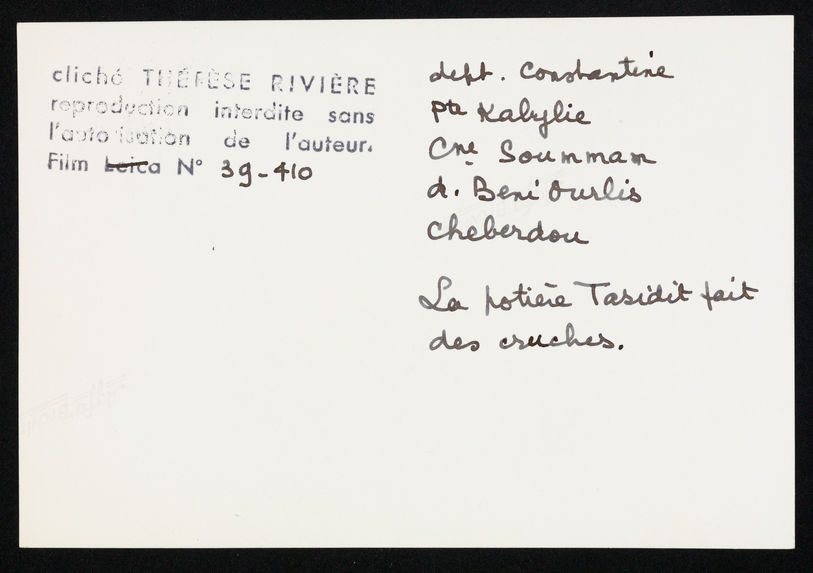 cliché THÉRÈSE RIVIÈRE
reproduction interdite sans
l'autorisation de l'auteur.
Film Leica N° 39-410
dept. Constantine
Pte Kabylie
Cne Soummam
d. Beni Ourlis
Cheberdou
La potière Tasidit fait
des cruches.